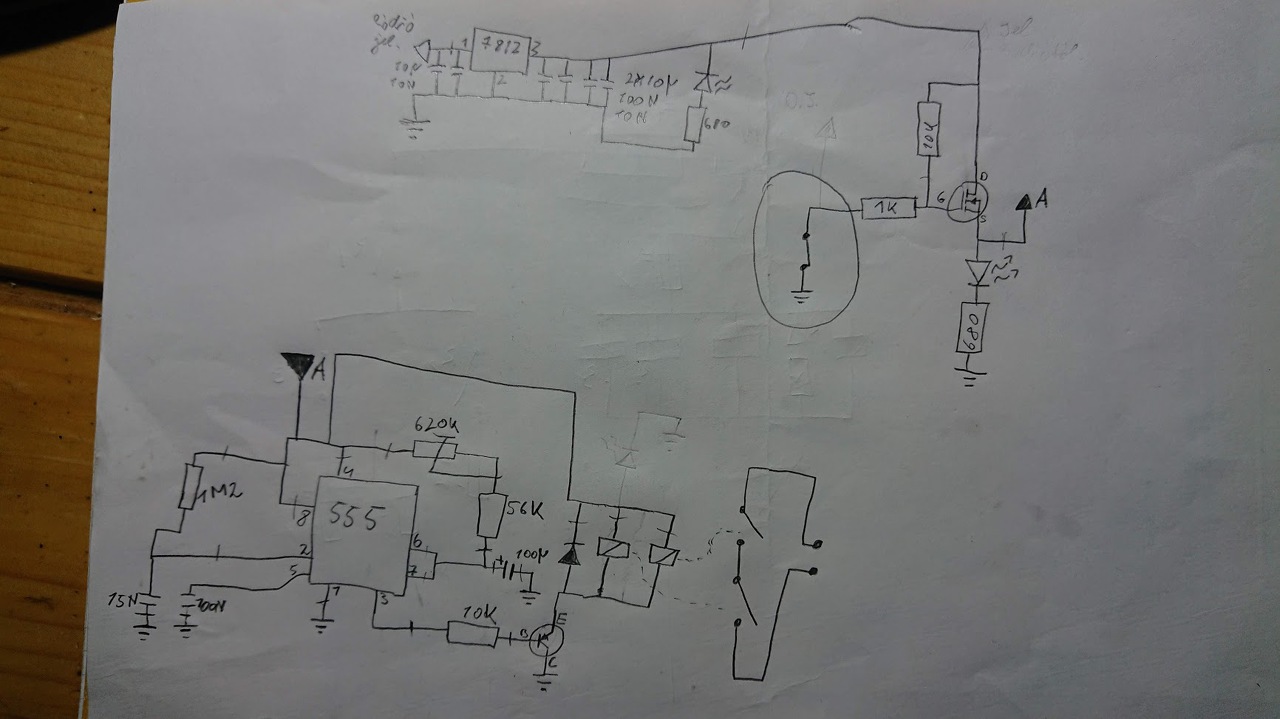 1
7812
3
2
10µ
10N
2x10µ
100N
10N
680
10K
1K
G
D
S
A
680
A
620K
4
1M2
8
555
56K
6
2
5
7
100µ
15N
100N
1
3
10K
B
E
C